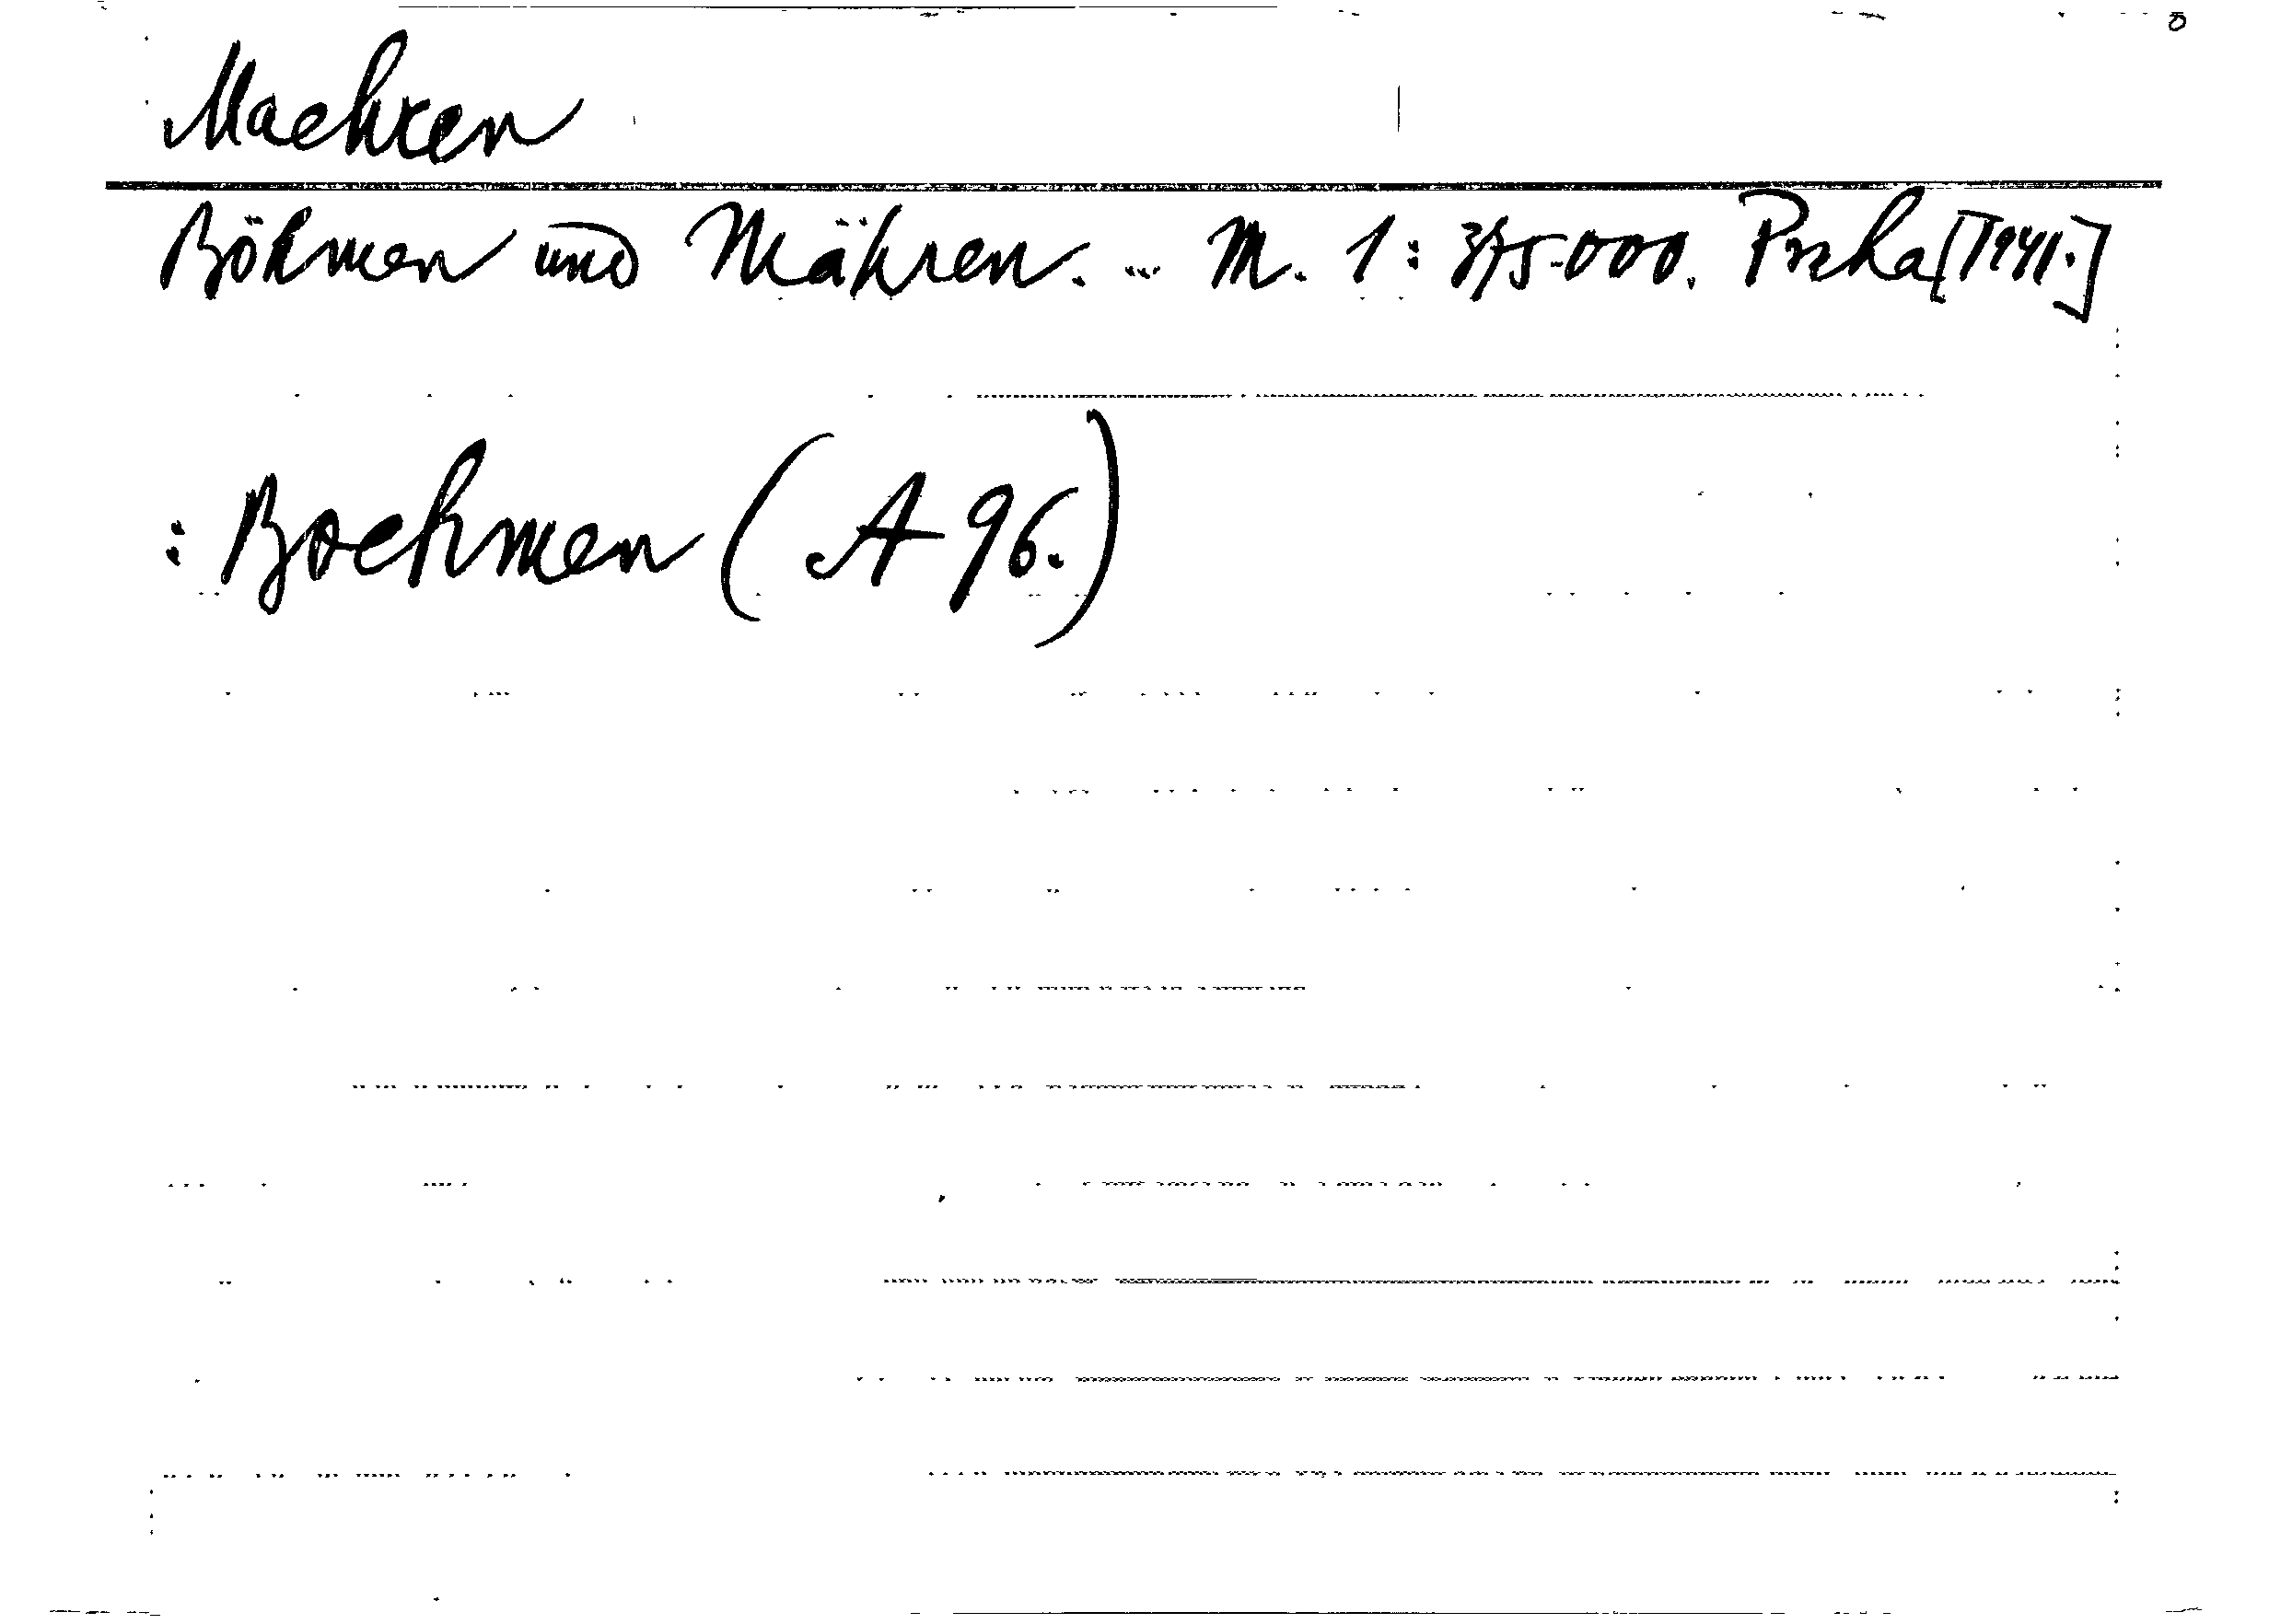 Maehren
Böhmen und Mähren. ... M. 1 : 375.000. Praha [1941.]
: Boehmen (A 96.)